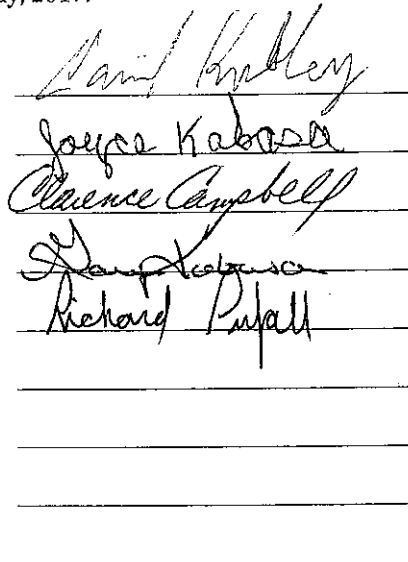 David
Joyce Kabasa
Clarence Campbell
Kabasa
Richard Pufall